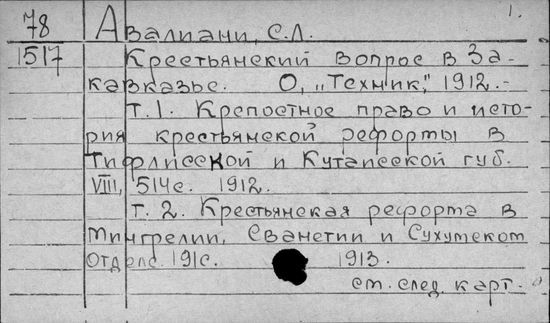 1.
78 Авалиани, С.Л.
1517 Крестьянский вопрос в За-
кавказье. О, „Техник," 1912.-
Т.1. Крепостное право и исто-
рия крестьянской реформы в
Тифлисской и Кутаисской губ.
VIII, 514с. 1912.
Т. 2. Крестьянская реформа в
Мингрелии, Сванетии и Сухумском
отделе. 191с. 1913.
см. след. карт.